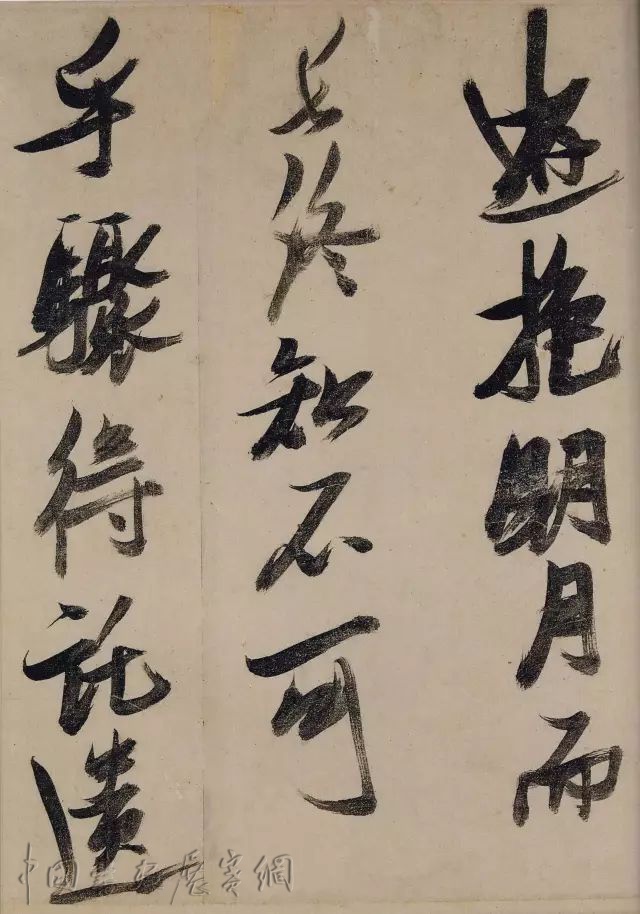 遊抱明月而
長終知不可
乎驟得託遺
中国书法展赛網